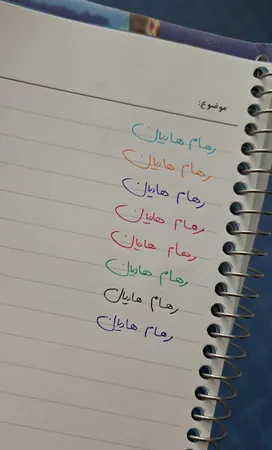 موضوع:
رهام هادیان
رهام هادیان
رهام هادیان
رهام هادیان
رهام هادیان
رهام هادیان
رهام هادیان
رهام هادیان